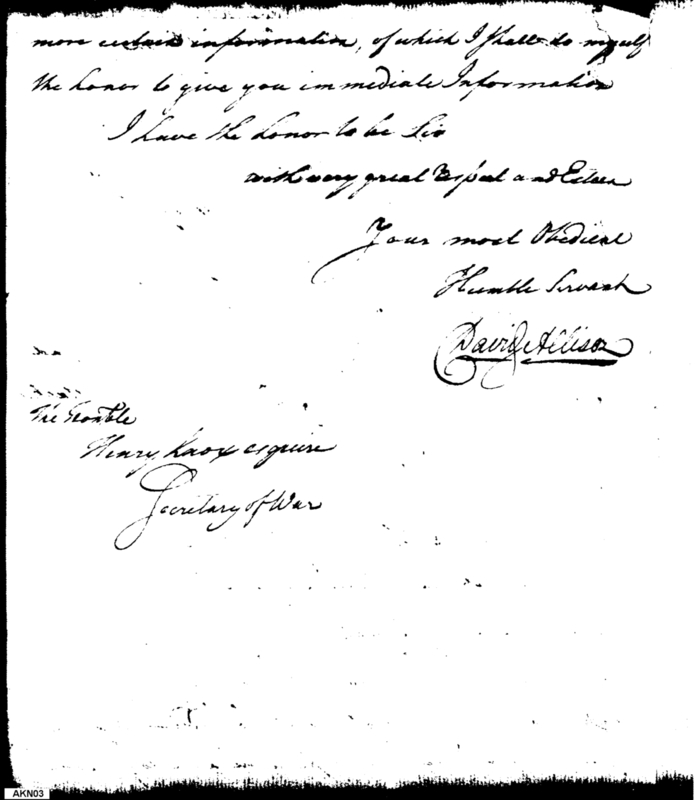 more certain information, of which I shall do myself
the honor to give you immediate Information
I have the honor to be Sir
with very great Respect and Esteem
Your most Obedient
Humble Servant
David Allison
The Honble
Henry Knox esquire
Secretary of War
AKN03